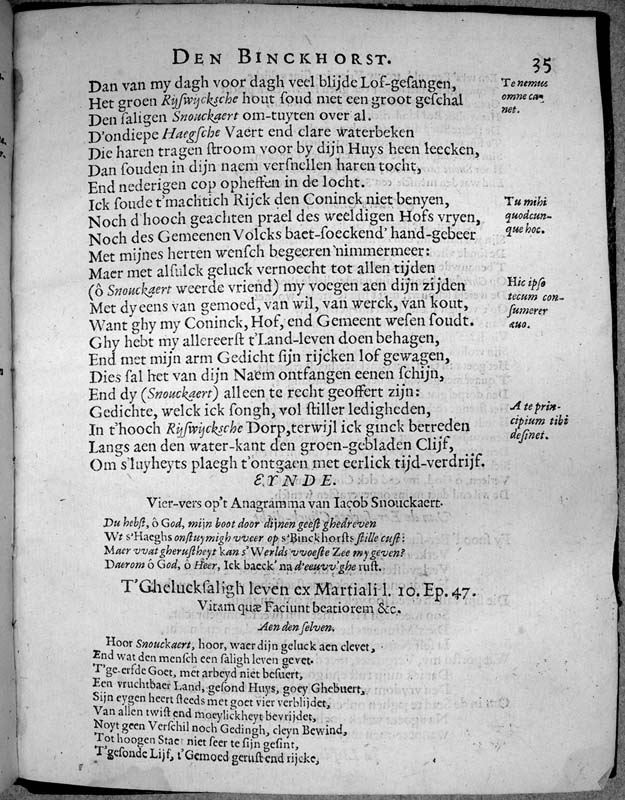 DEN BINCKHORST. 35
Dan van my dagh voor dagh veel blijde Lof-gesangen,
Het groen Rijswijcksche hout soud met een groot geschal
Den saligen Snouckaert om-tuyten over al.
D'ondiepe Haegsche Vaert end clare waterbeken
Die haren tragen stroom voor by dijn Huys heen leecken,
Dan souden in dijn naem versnellen haren tocht,
End nederigen cop opheffen in de locht.
Ick soude t'machtich Rijck den Coninck niet benyen,
Noch d'hooch geachten prael des weeldigen Hofs vryen,
Noch des Gemeenen Volcks baet-soeckend' hand-gebeer
Met mijnes herten wensch begeeren nimmermeer:
Maer met alsulck geluck vernoecht tot allen tijden
(ô Snouckaert weerde vriend) my voegen aen dijn zijden
Met dy eens van gemoed, van wil, van werck, van kout,
Want ghy my Coninck, Hof, end Gemeent wesen soudt.
Ghy hebt my allereerst t'Land-leven doen behagen,
End met mijn arm Gedicht sijn rijcken lof gewagen,
Dies sal het van dijn Naem ontfangen eenen schijn,
End dy (Snouckaert) alleen te recht geoffert zijn:
Gedichte, welck ick songh, vol stiller ledigheden,
In t'hooch Rijswijcksche Dorp, terwijl ick ginck betreden
Langs aen den water-kant den groen-gebladen Clijf,
Om s'luyheyts plaegh t'ontgaen met eerlick tijd-verdrijf.
Te nemus
omne ca-
net.
Tu mihi
quodcun-
que hoc.
Hic ipso
tecum con-
sumerer
ævo.
A te prin-
cipium tibi
desinet.
EYNDE.
Vier-vers op't Anagramma van Iacob Snouckaert.
Du hebst, ô God, mijn boot door dijnen geest ghedreven
Wt s'Haeghs onstuymigh vveer op s'Binckhorsts stille cust:
Maer vvat gherustheyt kan s'Werlds vvoeste Zee my geven?
Daerom ô God, ô Heer, Ick baeck' na d'eeuvv'ghe rust.
T'Ghelucksaligh leven ex Martiali l. 10. Ep. 47.
Vitam quæ Faciunt beatiorem &c.
Aen den selven.
Hoor Snouckaert, hoor, waer dijn geluck aen clevet,
End wat den mensch een saligh leven gevet.
T'ge-erfde Goet, met arbeyd niet besuert,
Een vruchtbaer Land, gesond Huys, goey Ghebuert,
Sijn eygen heert steeds met goet vier verblijdet,
Van allen twist end moeylickheyt bevrijdet,
Noyt geen Verschil noch Gedingh, cleyn Bewind,
Tot hoogen Staet niet seer te sijn gesint,
T'gesonde Lijf, t'Gemoed gerust end rijcke,